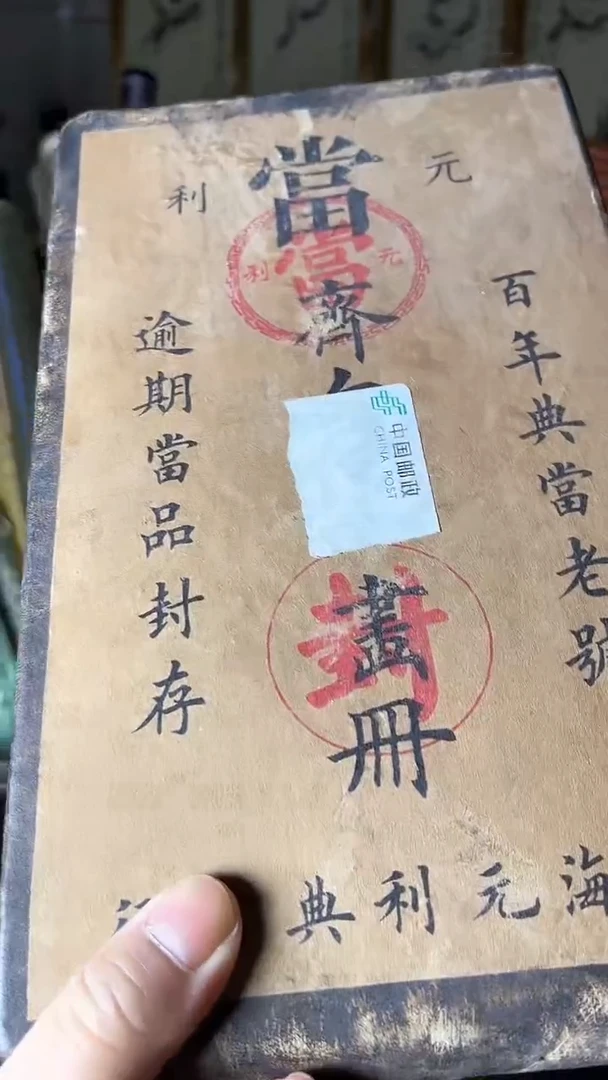 元利
當
當
元利
百年典當老號
齊
中国邮政
CHINA POST
封
畫冊
逾期當品封存
海元利典